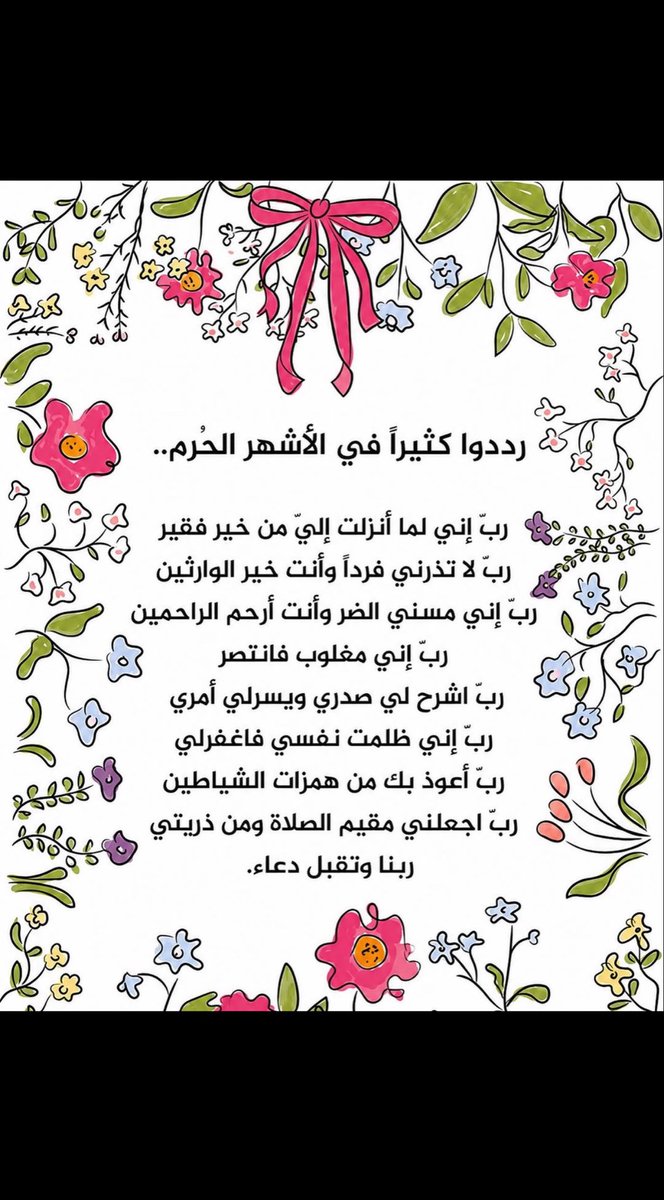 رددوا كثيراً في الأشهر الحُرم..
ربّ إني لما أنزلت إليّ من خير فقير
ربّ لا تذرني فرداً وأنت خير الوارثين
ربّ إني مسني الضر وأنت أرحم الراحمين
ربّ إني مغلوب فانتصر
ربّ اشرح لي صدري ويسرلي أمري
ربّ إني ظلمت نفسي فاغفرلي
ربّ أعوذ بك من همزات الشياطين
ربّ اجعلني مقيم الصلاة ومن ذريتي
ربنا وتقبل دعاء.